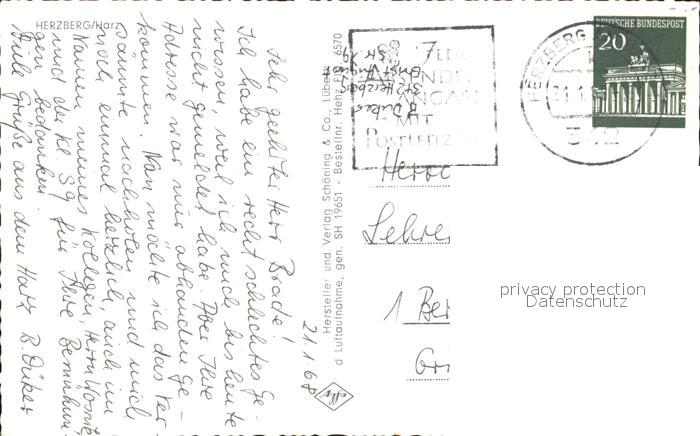 HERZBERG/Harz
21.1.68
Sehr geehrter Herr Brade!
Ich habe ein recht schlechtes Ge-
wissen, weil ich mich bis heute
nicht gemeldet habe. Aber Ihre
Adresse war mir abhanden ge-
kommen. Nun möchte ich das Ver-
säumte nachholen und mich
noch einmal herzlich, auch im
Namen meines Kollegen, Herrn
und der Kl. 5g für Ihre Bemühun-
gen bedanken.
Viele Grüße aus dem Harz B. Düker
Hersteller und Verlag Schöning & Co., Lübeck
Luftaufnahme, gen. SH 19651 - Bestellnr. Herz 6570
B. Düker
Herzberg
Ernst-August
Str.
MIT
POSTLEITZ
HERZBERG
DEUTSCHE BUNDESPOST
20
Herrn
Lehre
1 Ber
Gr
privacy protection
Datenschutz